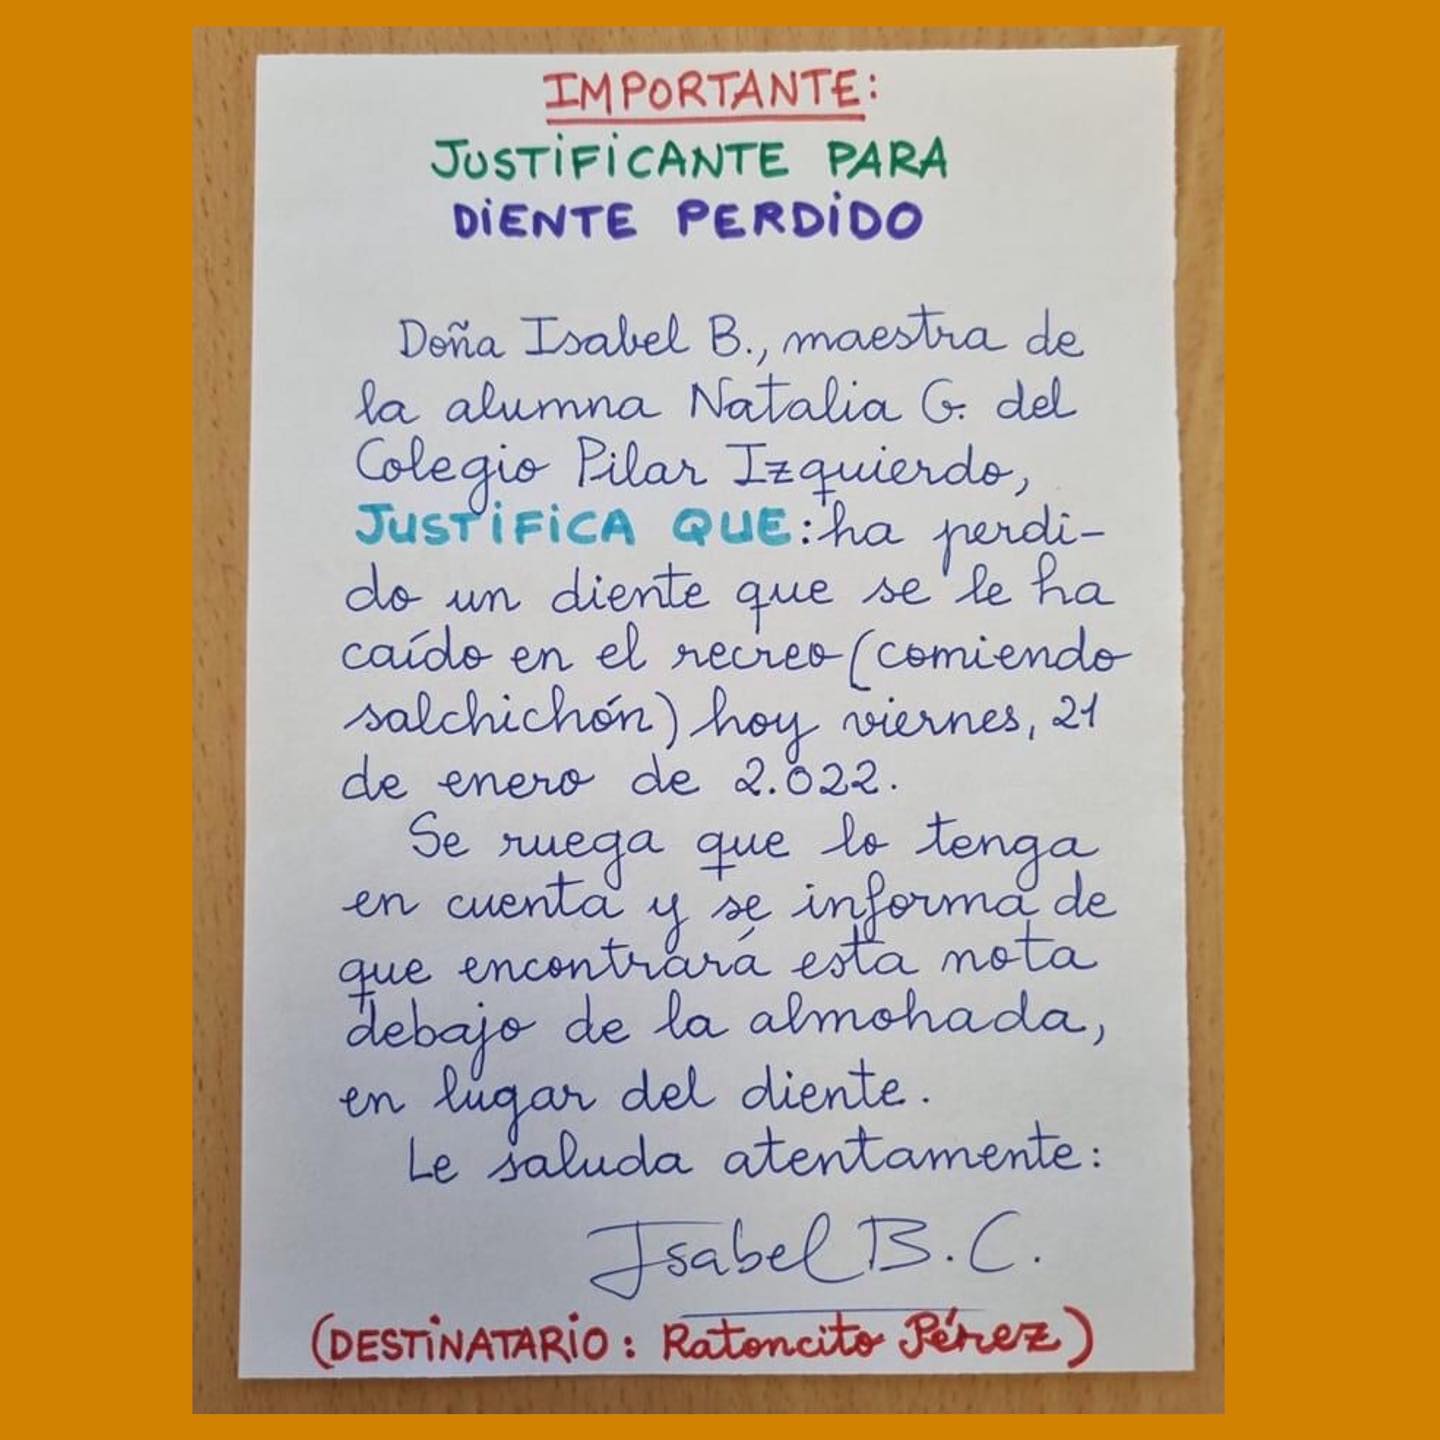 IMPORTANTE:
JUSTIFICANTE PARA
DIENTE PERDIDO
Doña Isabel B., maestra de
la alumna Natalia G. del
Colegio Pilar Izquierdo,
JUSTIFICA QUE: ha perdi-
do un diente que se le ha
caído en el recreo (comiendo
salchichón) hoy viernes, 21
de enero de 2.022.
Se ruega que lo tenga
en cuenta y se informa de
que encontrará esta nota
debajo de la almohada,
en lugar del diente.
Le saluda atentamente:
Isabel B. C.
(DESTINATARIO: Ratoncito Pérez)